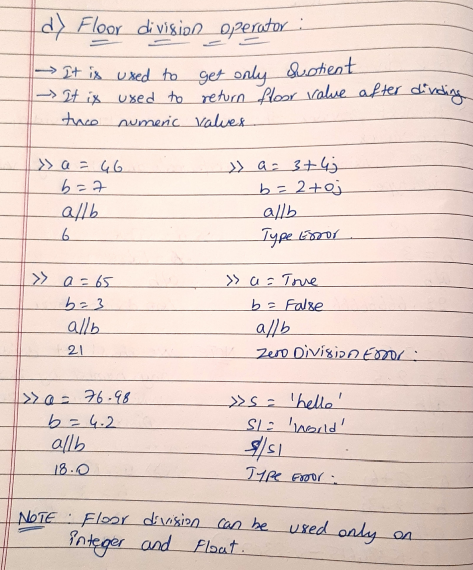 d) Floor division operator :
→ It is used to get only Quotient
→ It is used to return floor value after dividing
two numeric values.
>> a = 46
b = 7
a//b
6
>> a = 3+4j
b = 2+0j
a//b
Type Error
>> a = 65
b = 3
a//b
21
>> a = True
b = False
a//b
Zero Division Error :
>> a = 76.98
b = 4.2
a//b
18.0
>> S = 'hello'
S1 = 'world'
S//S1
TYPE Error :
NOTE : Floor division can be used only on
Integer and Float.